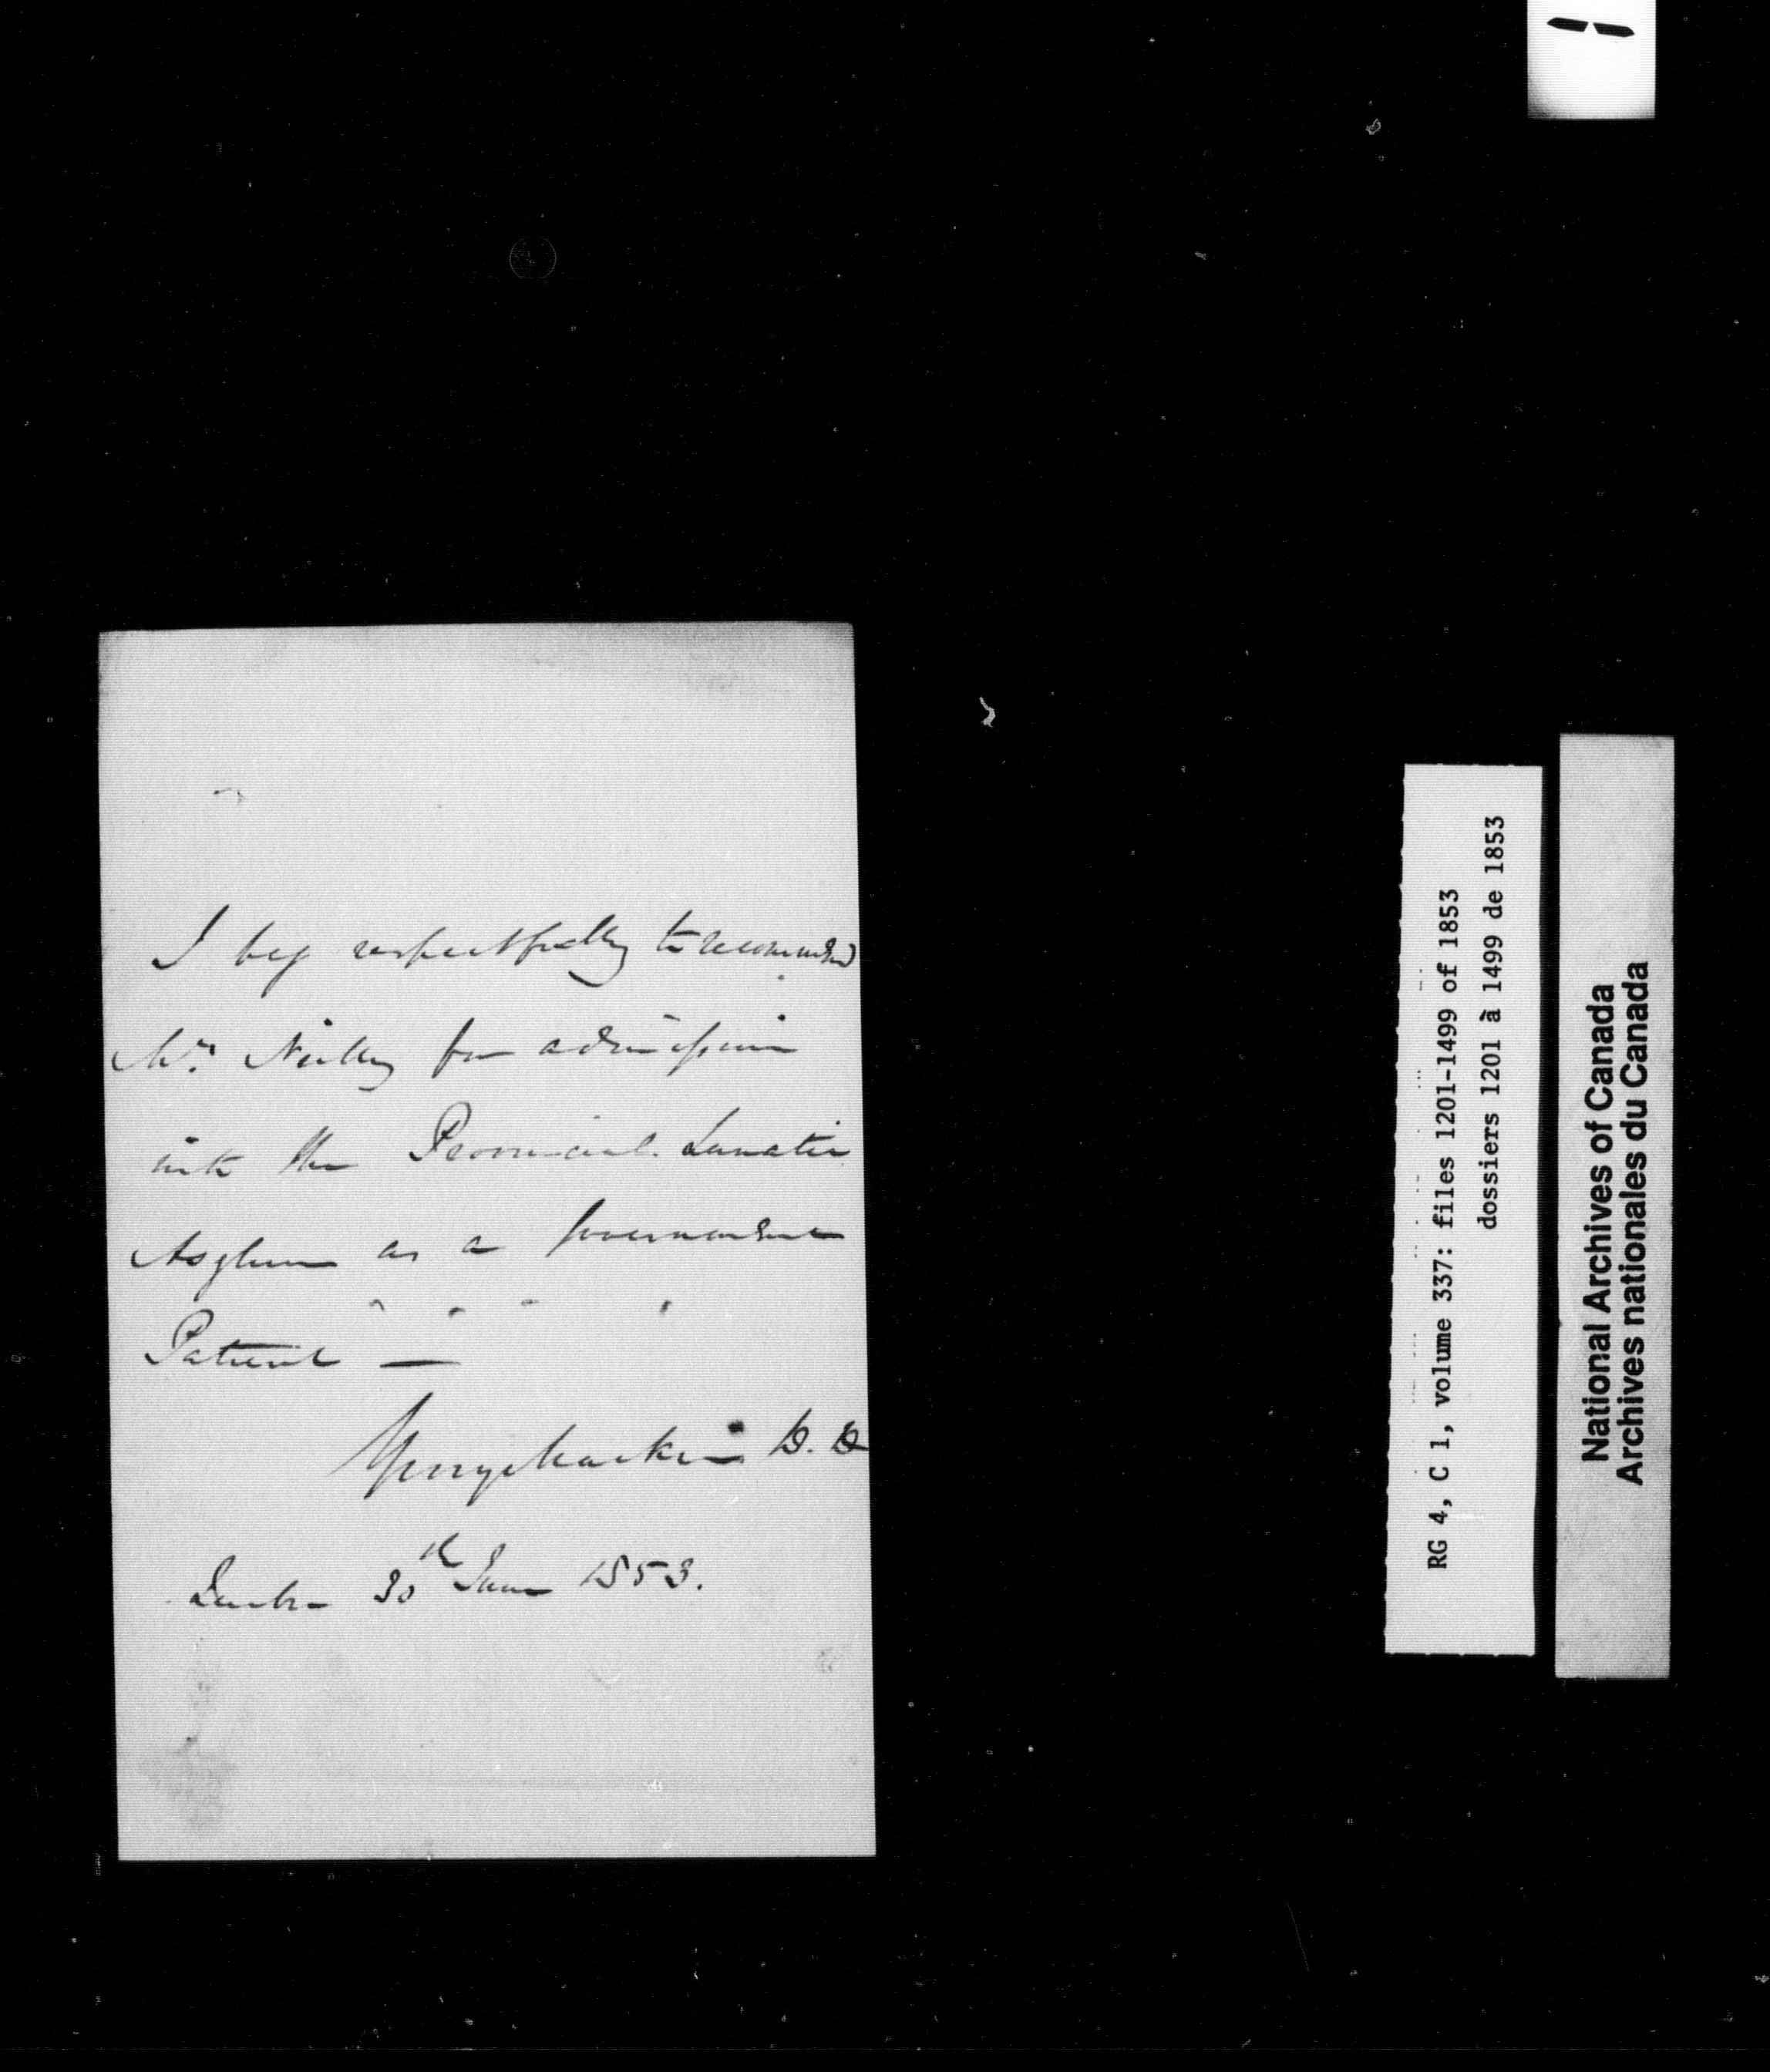 I beg respectfully to recommend
Mrs. Neilly for admission
into the Provincial Lunatic
Asylum as a Government
Patient —
George Mackie D. D
Quebec 30th June 1853.
RG 4, C 1, volume 337: files 1201-1499 of 1853
dossiers 1201 à 1499 de 1853
National Archives of Canada
Archives nationales du Canada